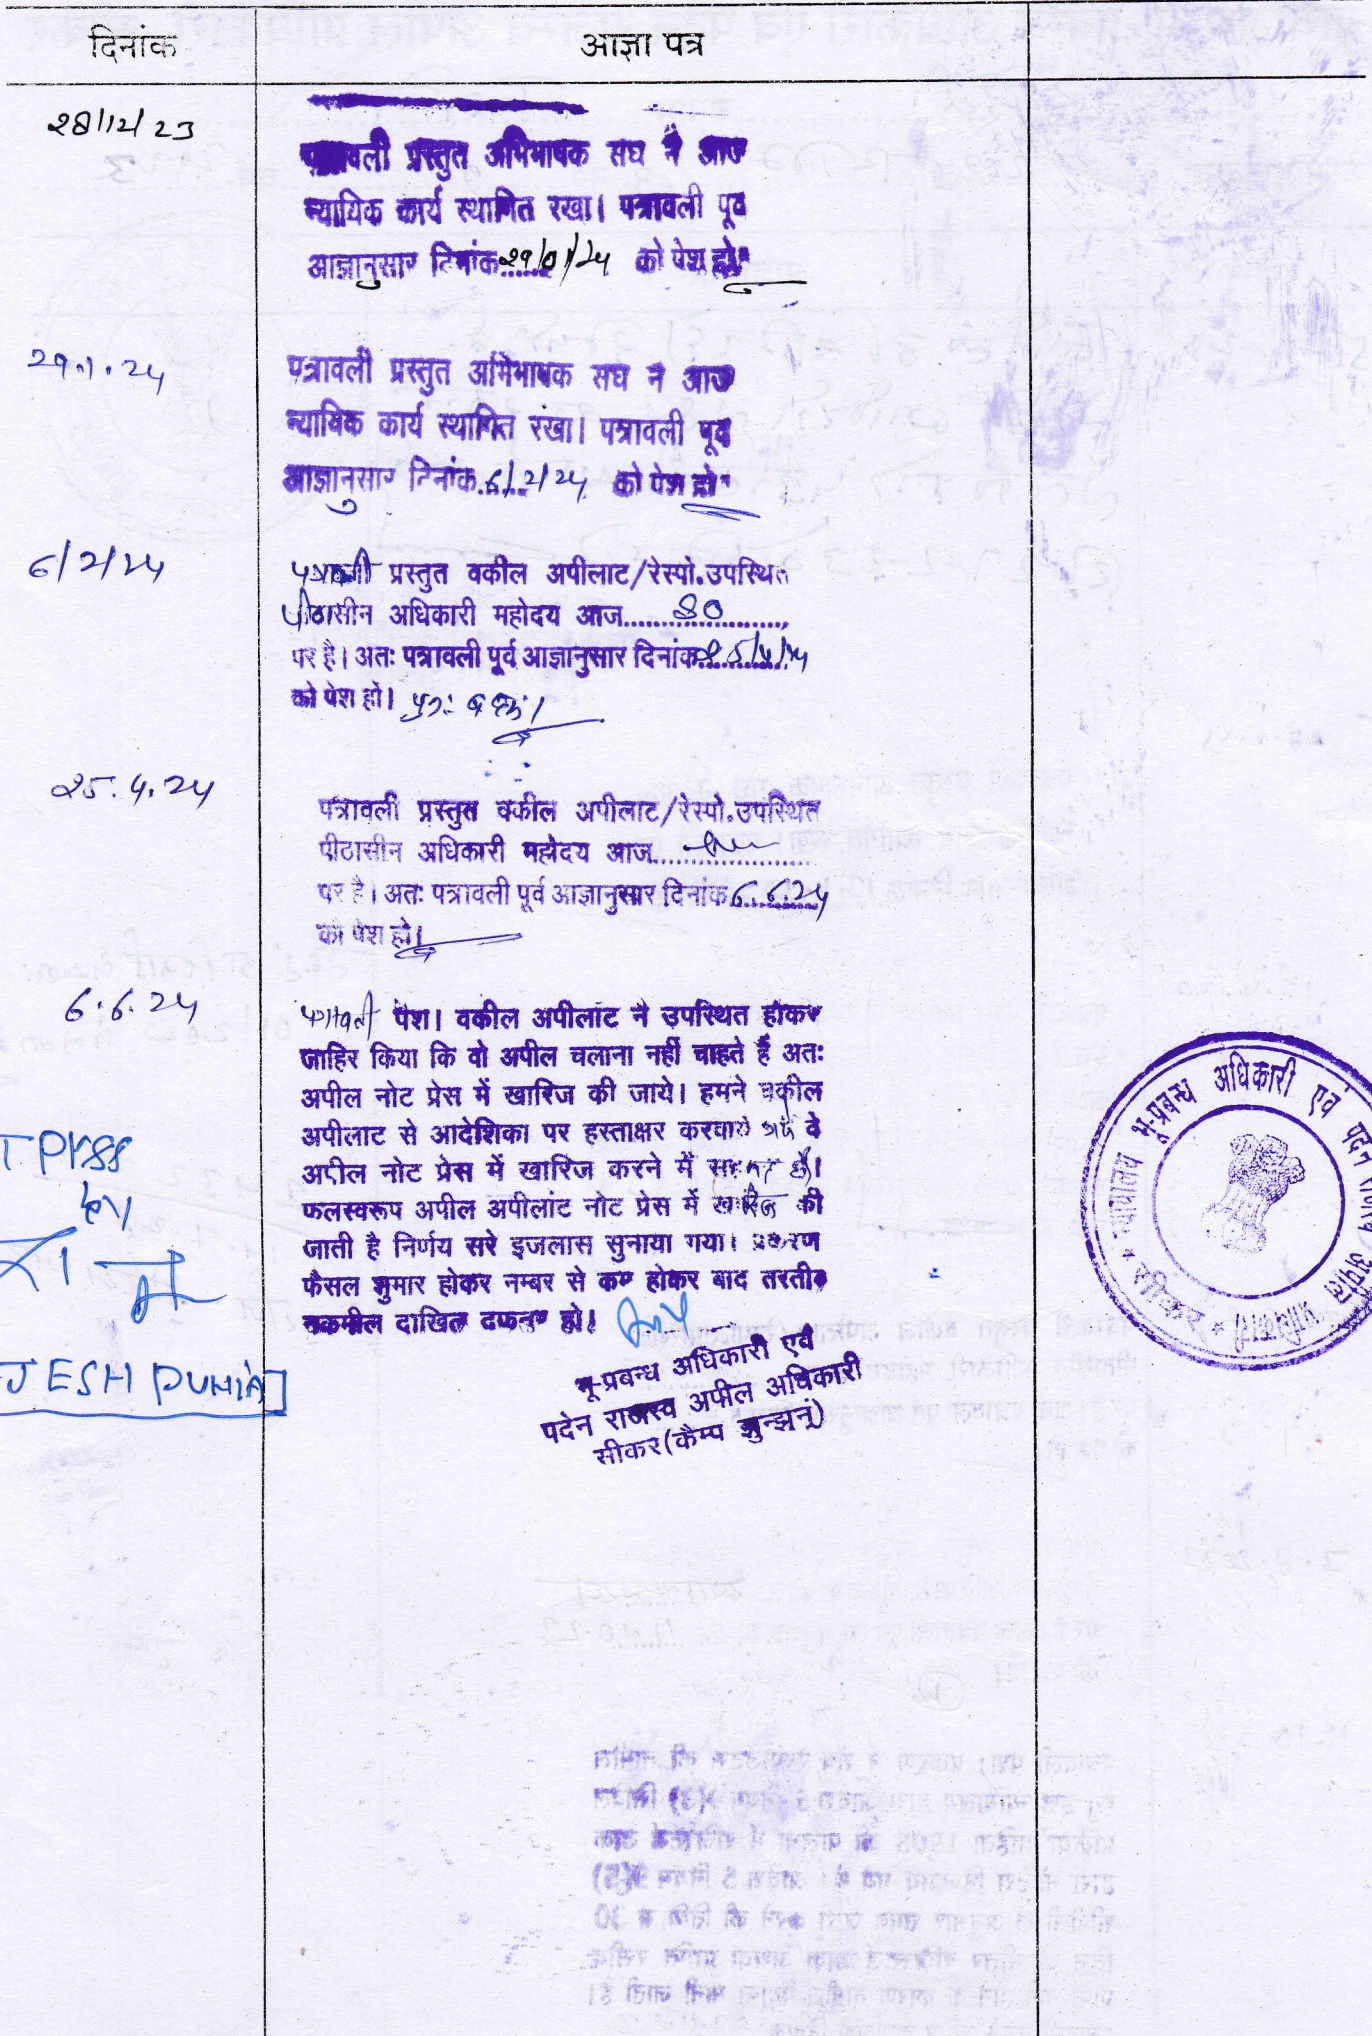 दिनांक
आज्ञा पत्र
28/12/23
पत्रावली प्रस्तुत अभिभाषक संघ ने आज
न्यायिक कार्य स्थागित रखा। पत्रावली पूर्व
आज्ञानुसार दिनांक 29/01/24 को पेश हो"
29.1.24
पत्रावली प्रस्तुत अभिभाषक संघ ने आज
न्यायिक कार्य स्थागित रखा। पत्रावली पूर्व
आज्ञानुसार दिनांक 6/2/24 को पेश हो"
6/2/24
पत्रावली प्रस्तुत वकील अपीलाट/रेस्पो.उपस्थित
पीठासीन अधिकारी महोदय आज
पर है। अतः पत्रावली पूर्व आज्ञानुसार दिनांक 25/4/24
को पेश हो।
25.4.24
पत्रावली प्रस्तुत वकील अपीलाट/रेस्पो.उपस्थित
पीठासीन अधिकारी महोदय आज
पर है। अतः पत्रावली पूर्व आज्ञानुसार दिनांक 6.6.24
को पेश हो।
6.6.24
पत्रावली पेश। वकील अपीलांट ने उपस्थित होकर
जाहिर किया कि वो अपील चलाना नहीं चाहते है अतः
अपील नोट प्रेस में खारिज की जाये। हमने वकील
अपीलाट से आदेशिका पर हस्ताक्षर करवाये वे
अपील नोट प्रेस में खारिज करने में है।
फलस्वरूप अपील अपीलांट नोट प्रेस में खारिज की
जाती है निर्णय सरे इजलास सुनाया गया। प्रकरण
फैसल शुमार होकर नम्बर से कम होकर बाद तरतीब
तकमील दाखिल दफ्तर हो।
JESH PUNIA
भू-प्रबन्ध अधिकारी एवं
पदेन राजस्व अपील अधिकारी
सीकर (कैम्प झुन्झुनूं)
न्यायालय भू-प्रबन्ध अधिकारी एवं पदेन राजस्व अपील अधिकारी * सीकर *